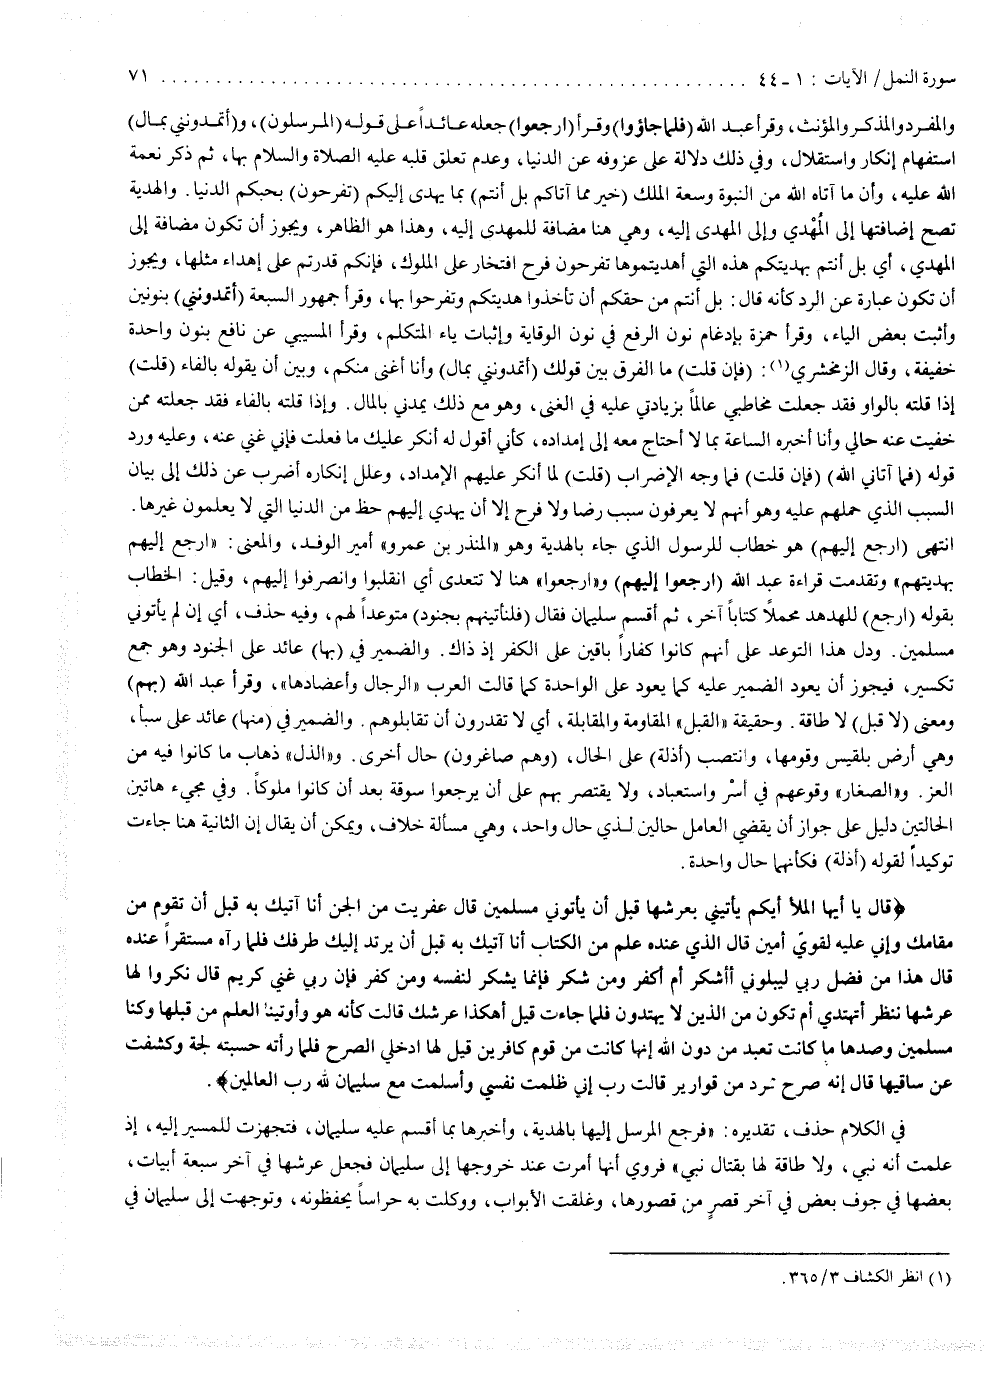 سورة النمل / الآيات : ١ ـ ٤٤ . . . . . . . . . . . . . . . . . . . . . . . . . . . . . . . . . . . . . . . . . . . . . . . . . . . ٧١
والمفرد والمذكر والمؤنث، وقرأ عبد الله (فلما جاؤوا) وقرأ (ارجعوا) جعله عائداً على قوله (المرسلون)، و(أتمدونني بمال)
استفهام إنكار واستقلال، وفي ذلك دلالة على عزوفه عن الدنيا، وعدم تعلق قلبه عليه الصلاة والسلام بها، ثم ذكر نعمة
الله عليه، وأن ما آتاه الله من النبوة وسعة الملك (خير مما آتاكم بل أنتم) بما يهدى إليكم (تفرحون) بحبكم الدنيا. والهدية
تصح إضافتها إلى المُهْدي وإلى المهدى إليه، وهي هنا مضافة للمهدى إليه، وهذا هو الظاهر، ويجوز أن تكون مضافة إلى
المهدي، أي بل أنتم بهديتكم هذه التي أهديتموها تفرحون فرح افتخار على الملوك، فإنكم قدرتم على إهداء مثلها، ويجوز
أن تكون عبارة عن الرد كأنه قال: بل أنتم من حقكم أن تأخذوا هديتكم وتفرحوا بها، وقرأ جمهور السبعة (أتمدونني) بنونين
وأثبت بعض الياء، وقرأ حمزة بإدغام نون الرفع في نون الوقاية وإثبات ياء المتكلم، وقرأ المسيبي عن نافع بنون واحدة
خفيفة، وقال الزمخشري(١): (فإن قلت) ما الفرق بين قولك (أتمدونني بمال) وأنا أغنى منكم، وبين أن يقوله بالفاء (قلت)
إذا قلته بالواو فقد جعلت مخاطبي عالماً بزيادتي عليه في الغنى، وهو مع ذلك يمدني بالمال. وإذا قلته بالفاء فقد جعلته ممن
خفيت عنه حالي وأنا أخبره الساعة بما لا أحتاج معه إلى إمداده، كأني أقول له أنكر عليك ما فعلت فإني غني عنه، وعليه ورد
قوله (فما آتاني الله) (فإن قلت) فما وجه الإضراب (قلت) لما أنكر عليهم الإمداد، وعلل إنكاره أضرب عن ذلك إلى بيان
السبب الذي حملهم عليه وهو أنهم لا يعرفون سبب رضا ولا فرح إلا أن يهدي إليهم حظ من الدنيا التي لا يعلمون غيرها.
انتهى (ارجع إليهم) هو خطاب للرسول الذي جاء بالهدية وهو «المنذر بن عمرو» أمير الوفد، والمعنى: «ارجع إليهم
بهديتهم» وتقدمت قراءة عبد الله (ارجعوا إليهم) و«ارجعوا» هنا لا تتعدى أي انقلبوا وانصرفوا إليهم، وقيل: الخطاب
بقوله (ارجع) للهدهد محملاً كتاباً آخر، ثم أقسم سليمان فقال (فلنأتينهم بجنود) متوعداً لهم، وفيه حذف، أي إن لم يأتوني
مسلمين. ودل هذا التوعد على أنهم كانوا كفاراً باقين على الكفر إذ ذاك. والضمير في (بها) عائد على الجنود وهو جمع
تكسير، فيجوز أن يعود الضمير عليه كما يعود على الواحدة كما قالت العرب «الرجال وأعضادها»، وقرأ عبد الله (بهم)
ومعنى (لا قبل) لا طاقة. وحقيقة «القبل» المقاومة والمقابلة، أي لا تقدرون أن تقابلوهم. والضمير في (منها) عائد على سبأ،
وهي أرض بلقيس وقومها، وانتصب (أذلة) على الحال، (وهم صاغرون) حال أخرى. و«الذل» ذهاب ما كانوا فيه من
العز. و«الصغار» وقوعهم في أسْر واستعباد، ولا يقتصر بهم على أن يرجعوا سوقة بعد أن كانوا ملوكاً. وفي مجيء هاتين
الحالتين دليل على جواز أن يقضي العامل حالين لذي حال واحد، وهي مسألة خلاف، ويمكن أن يقال إن الثانية هنا جاءت
توكيداً لقوله (أذلة) فكأنهما حال واحدة.
﴿قال يا أيها الملأ أيكم يأتيني بعرشها قبل أن يأتوني مسلمين قال عفريت من الجن أنا آتيك به قبل أن تقوم من
مقامك وإني عليه لقويّ أمين قال الذي عنده علم من الكتاب أنا آتيك به قبل أن يرتد إليك طرفك فلما رآه مستقراً عنده
قال هذا من فضل ربي ليبلوني أأشكر أم أكفر ومن شكر فإنما يشكر لنفسه ومن كفر فإن ربي غني كريم قال نكروا لها
عرشها ننظر أتهتدي أم تكون من الذين لا يهتدون فلما جاءت قيل أهكذا عرشك قالت كأنه هو وأوتينا العلم من قبلها وكنا
مسلمين وصدها ما كانت تعبد من دون الله إنها كانت من قوم كافرين قيل لها ادخلي الصرح فلما رأته حسبته لجة وكشفت
عن ساقيها قال إنه صرح ممرد من قوارير قالت رب إني ظلمت نفسي وأسلمت مع سليمان لله رب العالمين﴾.
في الكلام حذف، تقديره: «فرجع المرسل إليها بالهدية، وأخبرها بما أقسم عليه سليمان، فتجهزت للمسير إليه، إذ
علمت أنه نبي، ولا طاقة لها بقتال نبي» فروي أنها أمرت عند خروجها إلى سليمان فجعل عرشها في آخر سبعة أبيات،
بعضها في جوف بعض في آخر قصرٍ من قصورها، وغلقت الأبواب، ووكلت به حراساً يحفظونه، وتوجهت إلى سليمان في
(١) انظر الكشاف ٣/ ٣٦٥.